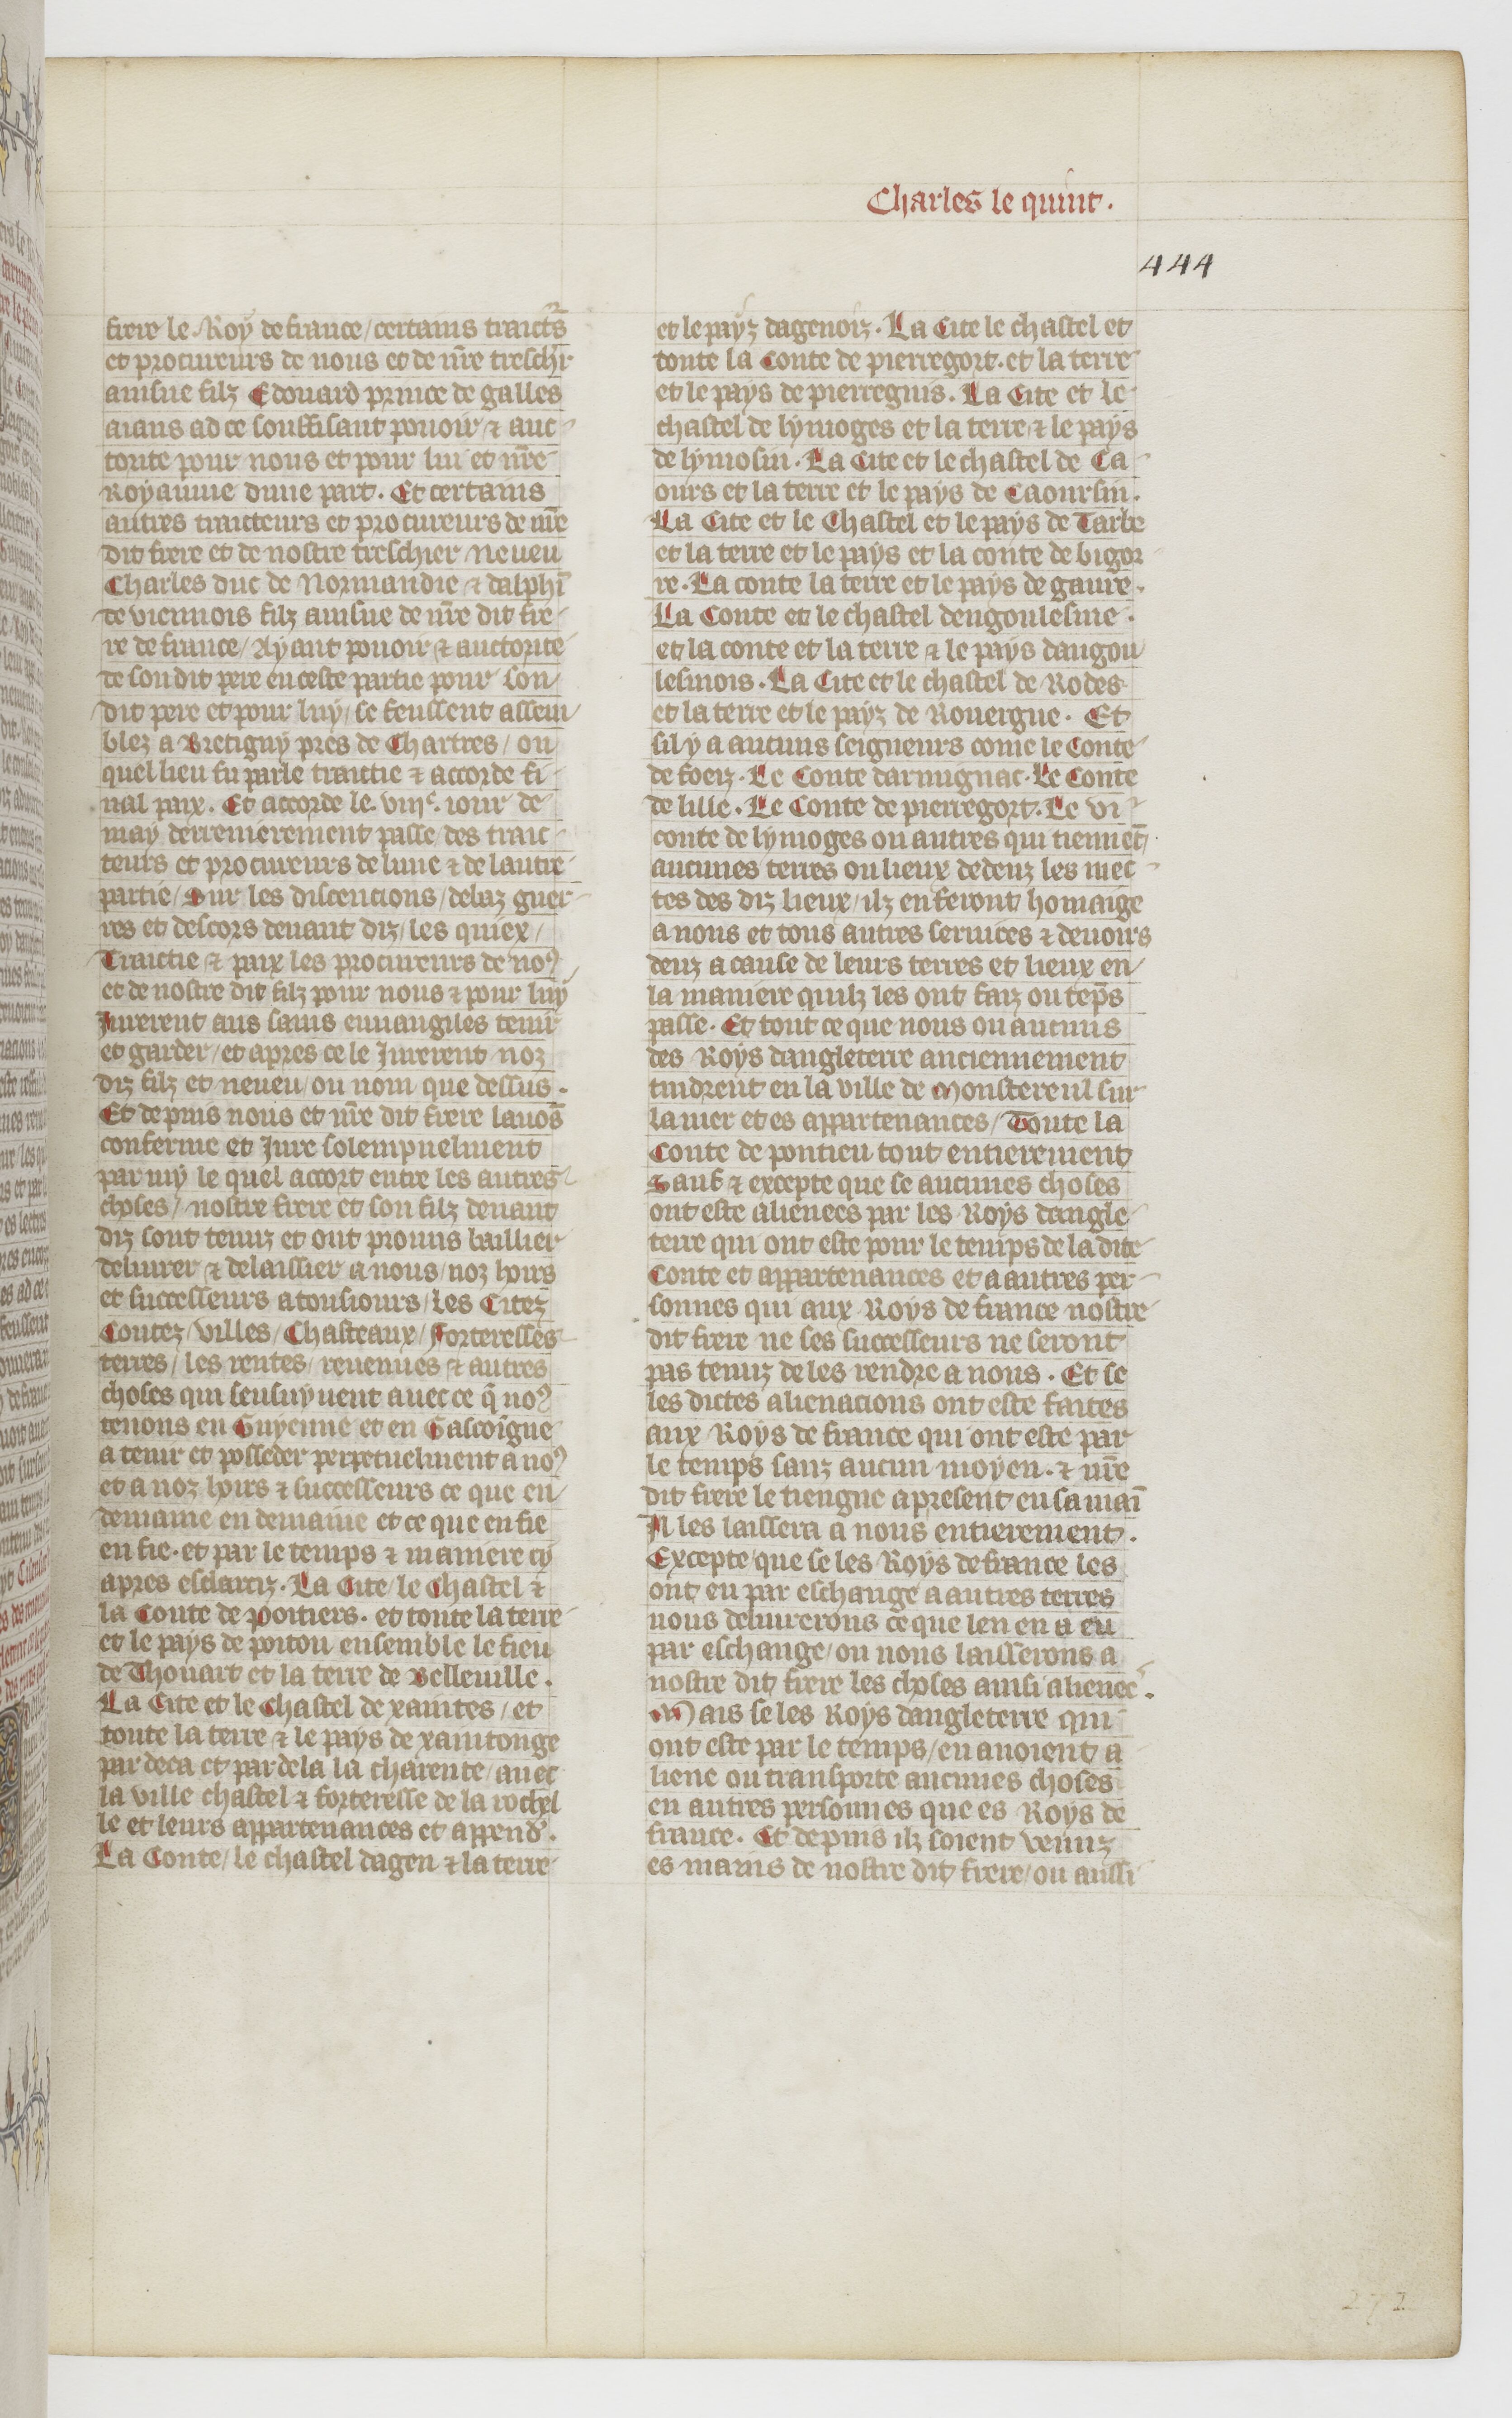 Charles le quint.
444
frere le Roy de france / certains traictrs̄
et procureurs de nous et de nr̄e treschr̄
ainsne filz Edouard prince de galles
aians ad ce souffisant pouoir ⁊ auc-
torite pour nous et pour lui et nr̄e
Royaume dune part. Et certains
autres traicteurs et procureurs de nr̄e
dit frere et de nostre treschier neueu
Charles duc de Normandie ⁊ dalphī
de viennois filz ainsne de nr̄e dit fre-
re de france / Ayant pouoir ⁊ auctorite
de son dit pere en ceste partie pour son
dit pere et pour luy / se feussent assem
blez a Bretigny pres de Chartres / ou
quel lieu fu parle traictie ⁊ accorde fi-
nal paix. Et accorde le. viijᵉ. iour de
may derrenierement passe / des traic-
teurs et procureurs de lune ⁊ de lautre
partie / Sur les discencions / debaz guer-
res et descors deuant diz / les quiex /
Traictie ⁊ paix les procureurs de noꝰ
et de nostre dit filz pour nous ⁊ pour luy
Jurerent aus sains euuangiles tenir
et garder / et apres ce le Jurerent noz
diz filz et neueu / ou nom que dessus.
Et depuis nous et nr̄e dit frere lauōs
conferme et Jure solempnelment
par my le quel accort entre les autres
choses / nostre frere et son filz deuant
diz sont tenuz et ont promis baillier
deliurer ⁊ delaissier a nous / noz hoirs
et successeurs a tousiours / Les Citez
Contez / villes / Chasteaux / Forteresses
terres / les rentes / reuenues ⁊ autres
choses qui sensuyuent auec ce q̄ noꝰ
tenons en Guyenne et en Gascoigne
a tenir et posseder perpetuelment a noꝰ
et a noz hoirs ⁊ successeurs ce que en
demaine en demaine et ce que en fie
en fie. et par le temps ⁊ maniere cy
apres esclarciz. La Cite / le Chastel ⁊
la Conte de Poitiers. et toute la terre
et le pays de poitou ensemble le fieu
de Thouart et la terre de Belleuille.
La Cite et le Chastel de xaintes / et
toute la terre ⁊ le pays de xaintonge
par deca et par dela la charente / auec
la ville chastel ⁊ forteresse de la rochel
le et leurs appartenances et append'.
La Conte / le chastel dagen ⁊ la terre
et le payz dagenoiz. La Cite le chastel et
toute la Conte de pierregort. et la terre
et le pays de pierreguis. La Cite et le
chastel de lymoges et la terre ⁊ le pays
de lymosin. La Cite et le chastel de Ca-
ours et la terre et le pays de Caoursin.
La Cite et le Chastel et le pays de Tarbe
et la terre et le pays et la conte de bigor-
re. La conte la terre et le pays de gaure.
La Conte et le chastel dengoulesme.
et la conte et la terre ⁊ le pays dangou
lesmois. La Cite et le chastel de Rodes
et la terre et le payz de Rouergue. Et
sil y a aucuns seigneurs come le Conte
de foeiz. Le Conte darmignac. Le Conte
de lille. Le Conte de pierregort. Le vi-
conte de lymoges ou autres qui tiennēt
aucunes terres ou lieux dedenz les mec-
tes des diz lieux / ilz en feront homaige
a nous et tous autres seruices ⁊ deuoirs
deuz a cause de leurs terres et lieux en
la maniere quilz les ont faiz ou tēps
passe. Et tout ce que nous ou aucuns
des Roys dangleterre anciennement
tindrent en la ville de Monstereul sur
la mer et es appartenances / Toute la
Conte de pontieu tout entierement
Sauf ⁊ excepte que se aucunes choses
ont este alienees par les Roys dangle-
terre qui ont este pour le temps de la dite
Conte et appartenances et a autres per-
sonnes qui aux Roys de france nostre
dit frere ne ses successeurs ne seront
pas tenuz de les rendre a nous. Et se
les dictes alienacions ont este faites
aux Roys de france qui ont este par
le temps sanz aucun moyen. ⁊ nr̄e
dit frere le tiengne a present en sa maī
Il les laissera a nous entierement.
Excepte / que se les Roys de france les
ont eu par eschange a autres terres
nous deliurerons ce que len en a eu
par eschange / ou nous laisserons a
nostre dit frere les choses ainsi alienee᷒.
Mais se les Roys dangleterre qui
ont este par le temps / en auoient a
liene ou transporte aucunes choses
en autres personnes que es Roys de
france. Et depuis ilz soient venuz
es mains de nostre dit frere / ou aussi